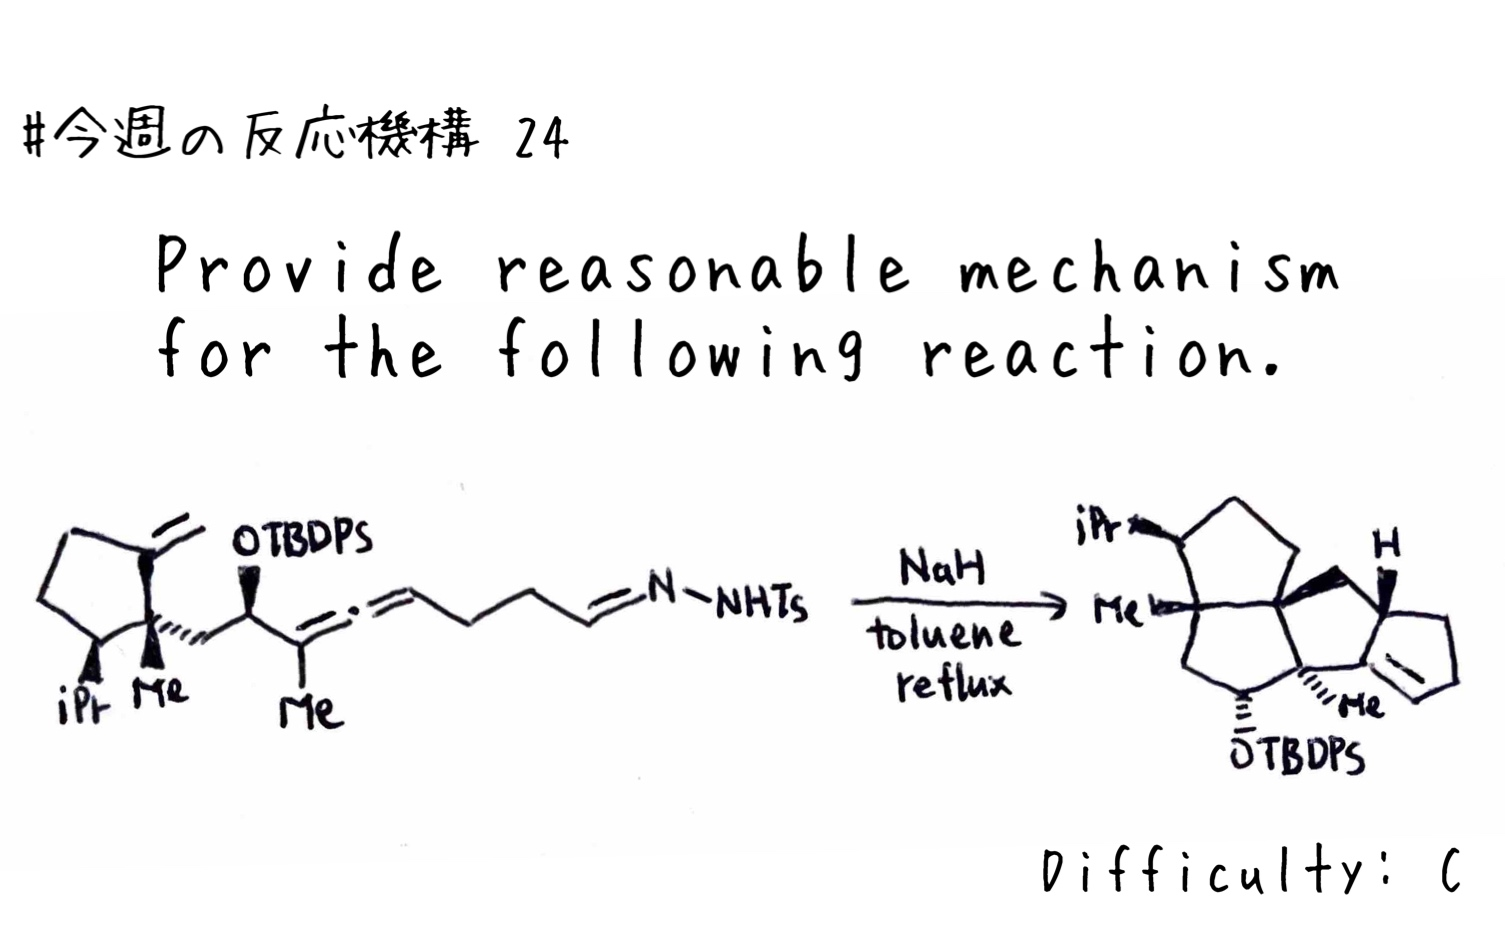 #今週の反応機構 24
Provide reasonable mechanism
for the following reaction.
OTBDPS
N
NHTs
iPr
Me
Me
NaH
toluene
reflux
iPr
H
Me
Me
OTBDPS
Difficulty: C